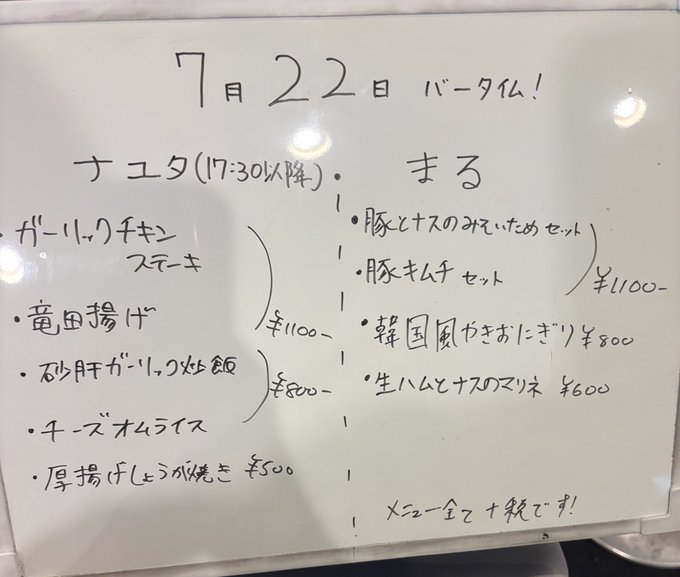 7月22日 バータイム!
ナユタ(17:30以降)・
・ガーリックチキン
ステーキ
・竜田揚げ
¥1100-
・砂肝ガーリック炒飯
¥800-
・チーズオムライス
・厚揚げしょうが焼き ¥500
まる
・豚とナスのみそいためセット
・豚キムチセット
¥1100-
・韓国風やきおにぎり ¥800
・生ハムとナスのマリネ ¥600
メニュー全て+税です!